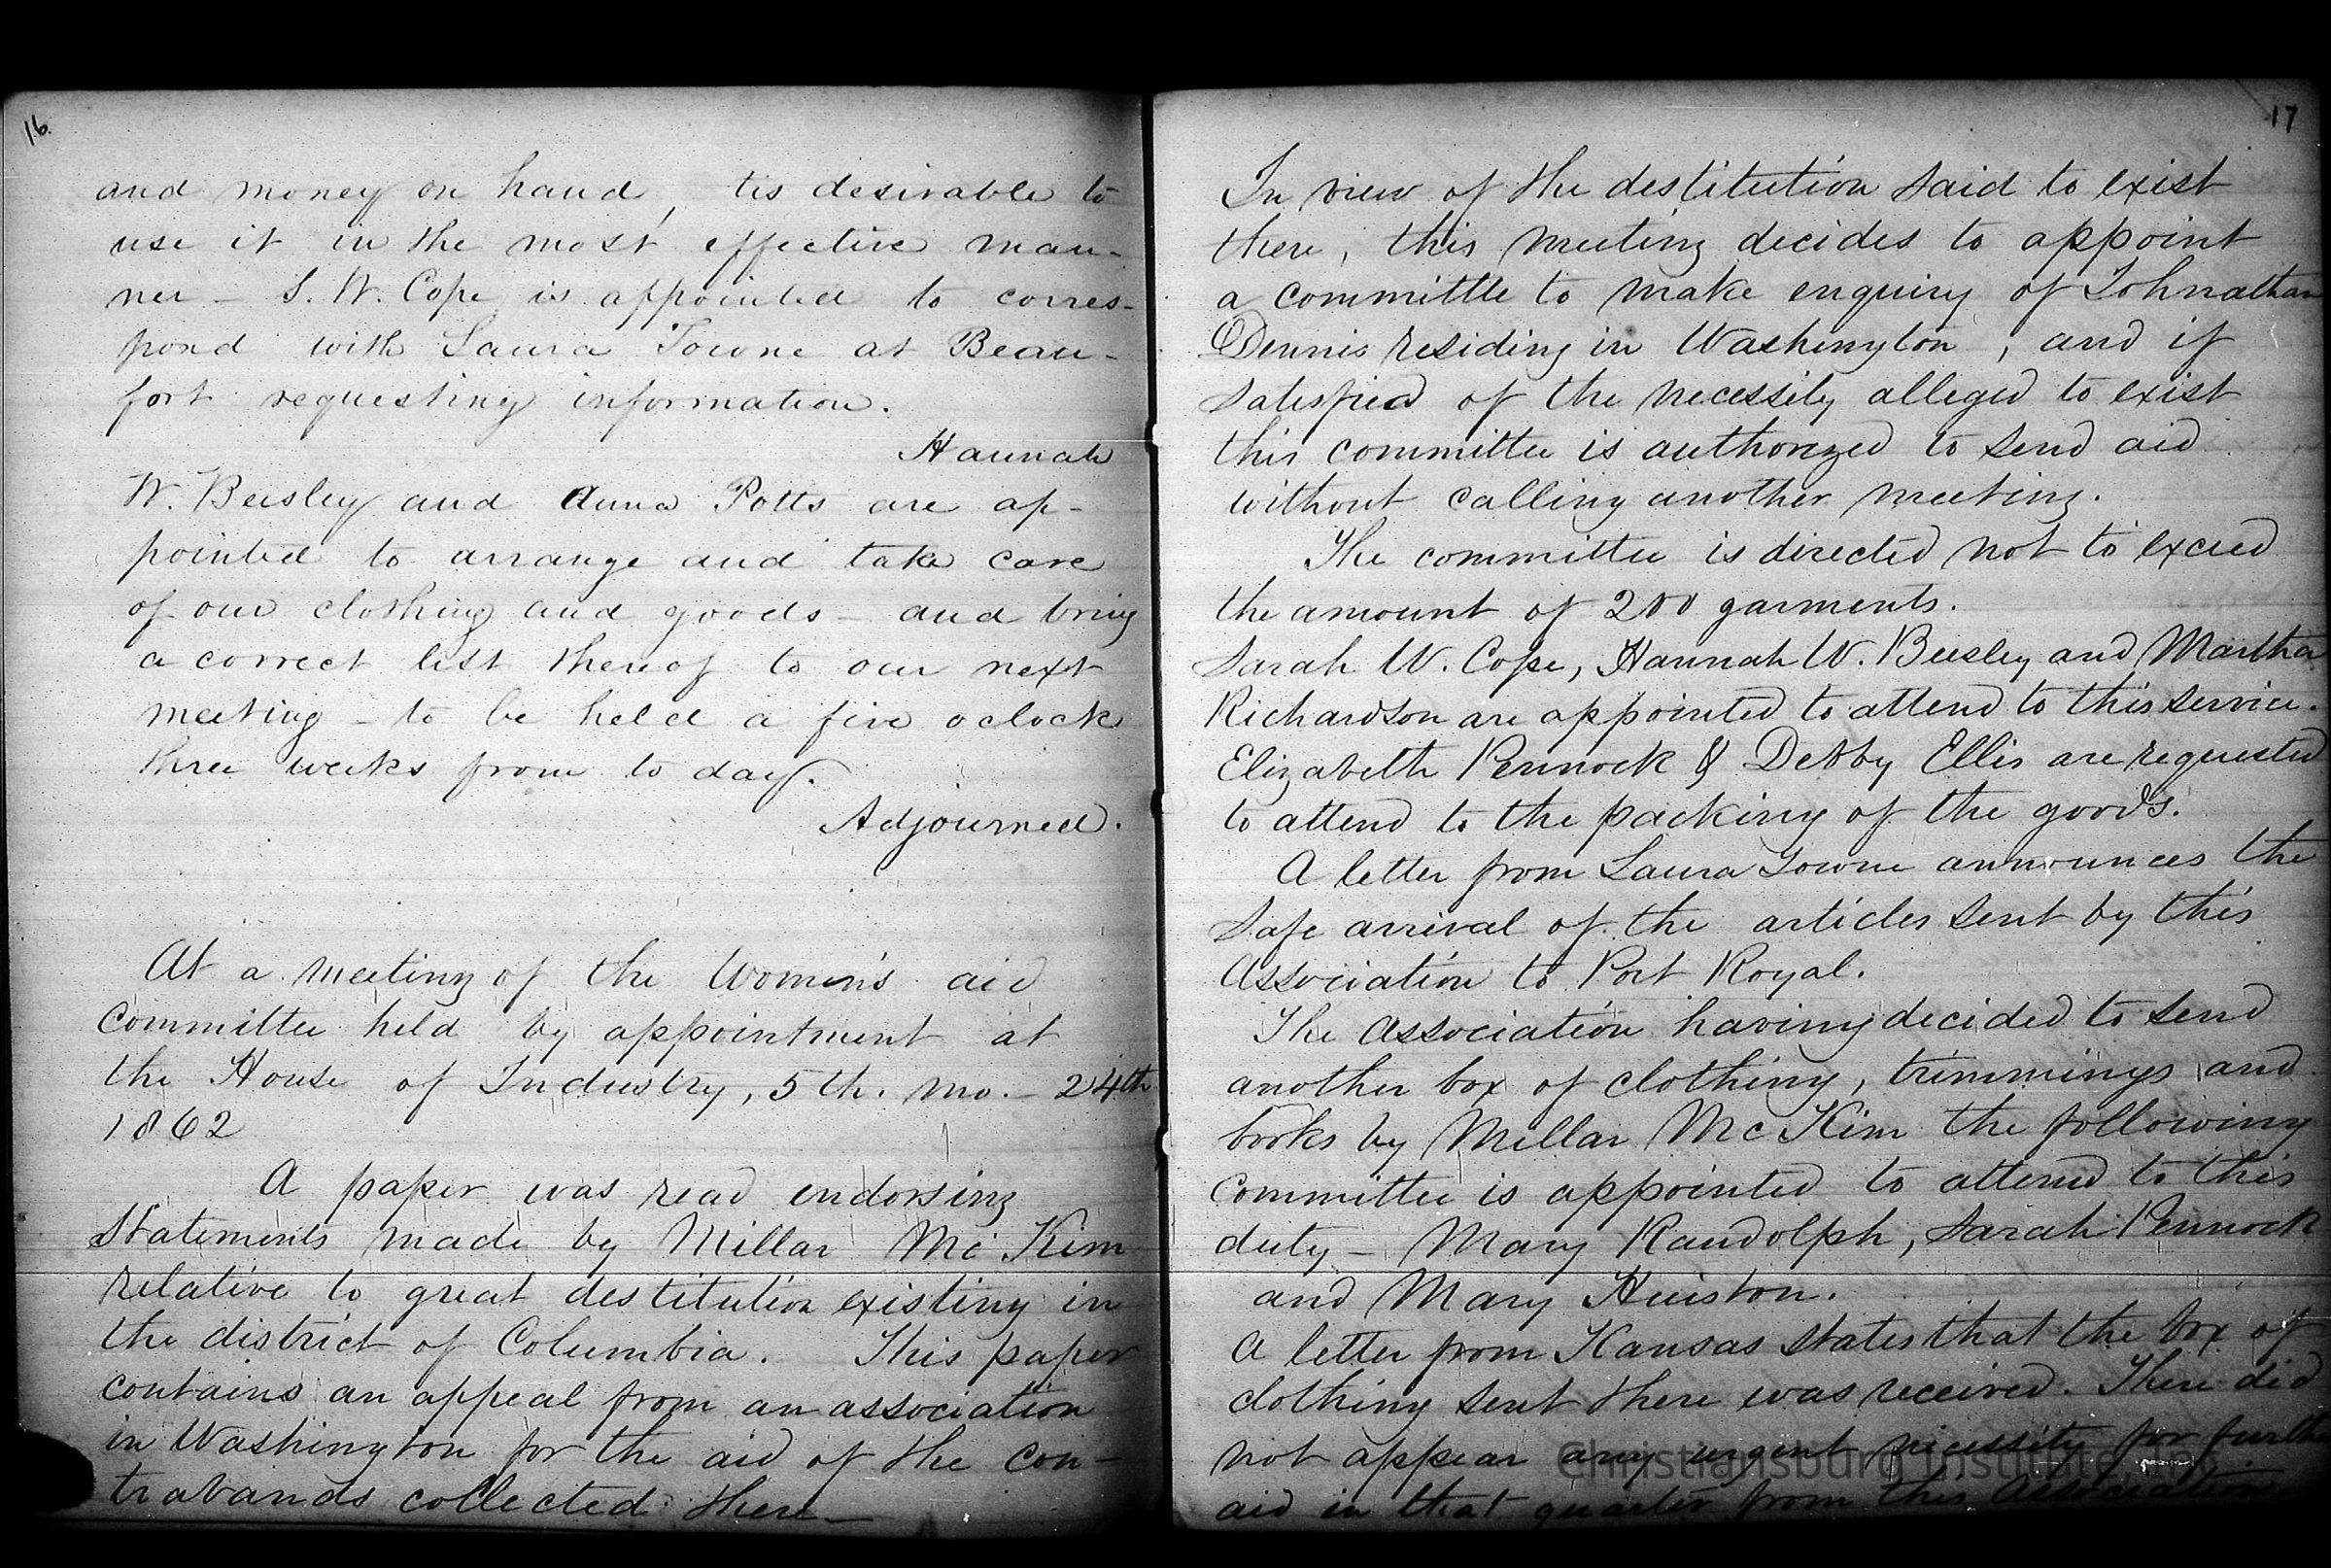 16.
and money on hand, tis desirable to
use it in the most effective man-
ner - S. W. Cope is appointed to corres-
pond with Laura Towne at Beau-
fort requesting information.
Hannah
W. Beesley and Anna Potts are ap-
pointed to arrange and take care
of our clothing and goods - and bring
a correct list thereof to our next
meeting - to be held a five oclock
three weeks from to day.
Adjourned.
At a meeting of the Women's aid
Committee held by appointment at
the House of Industry, 5th. mo. - 24th
1862
A paper was read endorsing
statements made by Millar McKim
relative to great destitution existing in
the district of Columbia. This paper
contains an appeal from an association
in Washington for the aid of the con-
trabands collected there -
17
In view of the destitution said to exist
there, this meeting decides to appoint
a committee to make enquiry of Johnathan
Dennis residing in Washington, and if
satisfied of the necessity alleged to exist
this committee is authorized to send aid
without calling another meeting.
The committee is directed not to exceed
the amount of 200 garments.
Sarah W. Cope, Hannah W. Beesley and Martha
Richardson are appointed to attend to this service.
Elizabeth Pennock & Debby Ellis are requested
to attend to the packing of the goods.
A letter from Laura Towne announces the
safe arrival of the articles sent by this
Association to Port Royal.
The Association having decided to send
another box of clothing, trimmings and
books by Millar McKim the following
committee is appointed to attend to this
duty - Mary Randolph, Sarah Pennock
and Mary Huiston.
A letter from Kansas states that the box of
clothing sent there was received. There did
not appear any urgent necessity for further
aid in that quarter from this Association.
Christiansburg Institute, Inc.